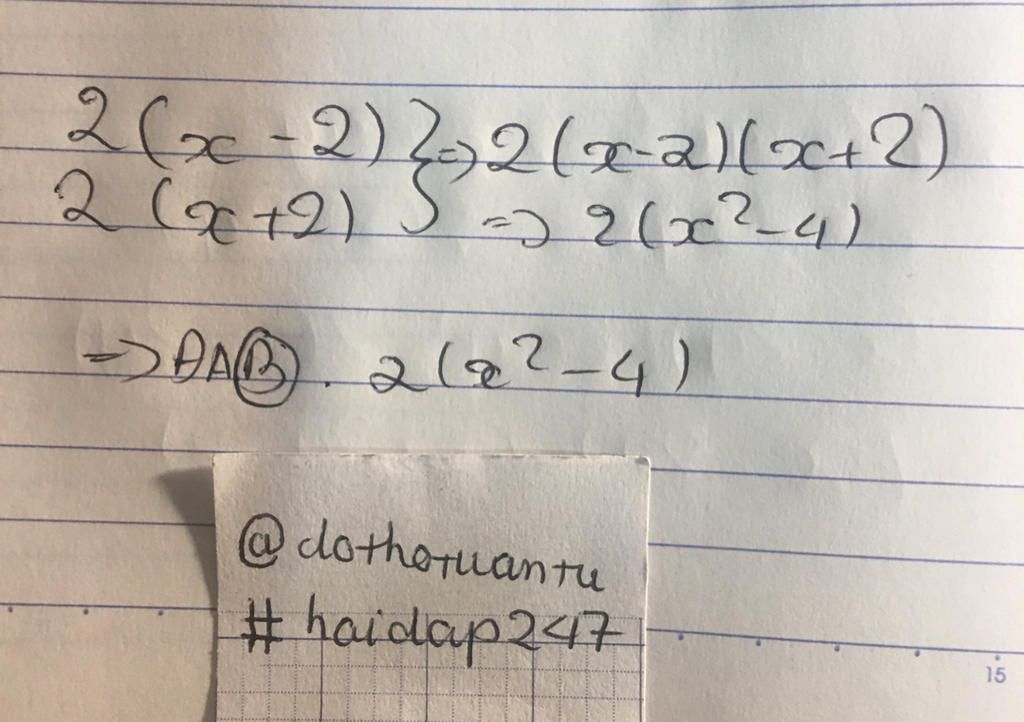 2(x-2) } => 2(x-2)(x+2)
2 (x+2) } => 2(x²-4)
=> ĐA B. 2(x²-4)
@dothotuantu
# hoidap247
15